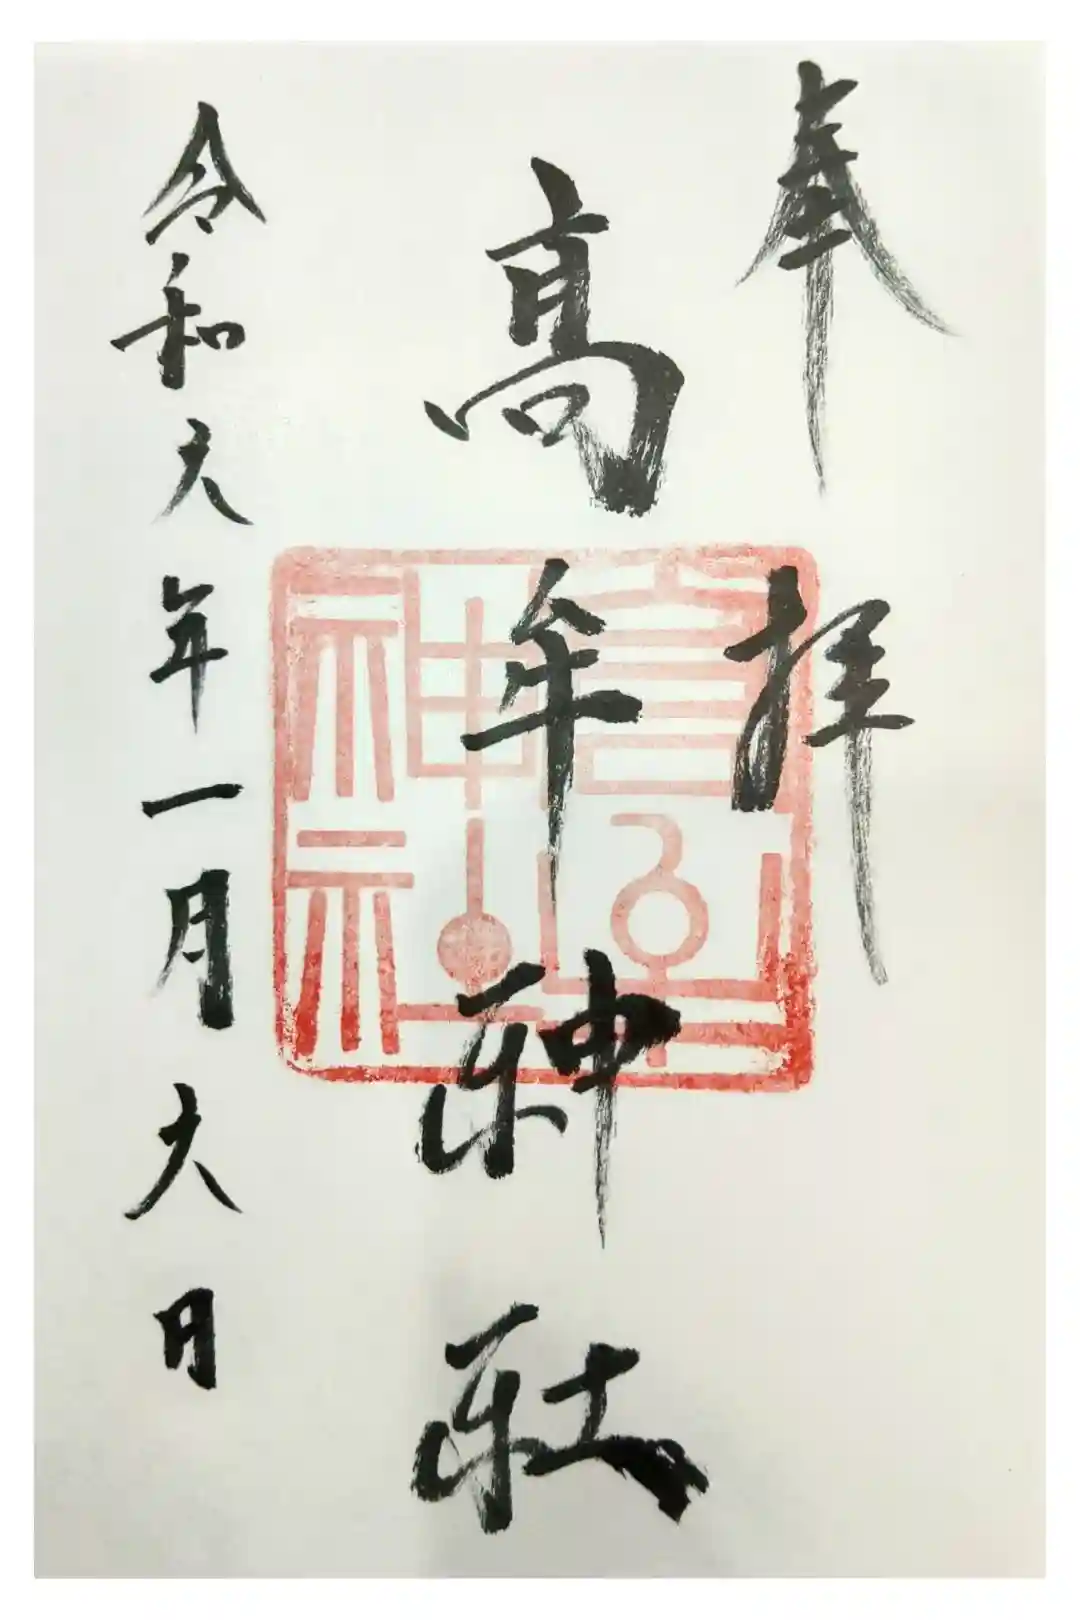 奉拝
高牟神社
令和六年一月六日
高牟
神社